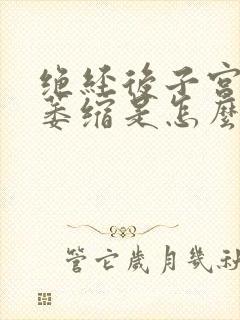 绝经后子宫
萎缩是怎么
管它岁月几